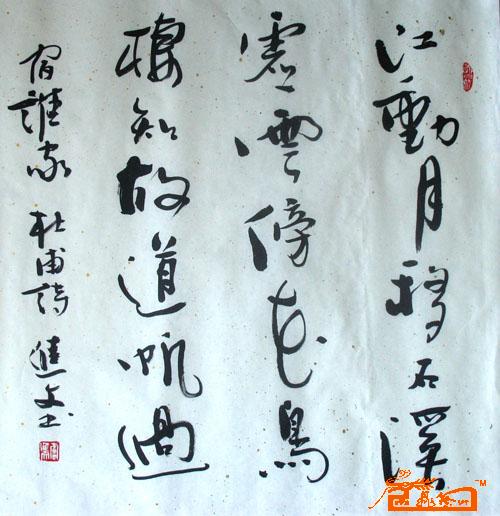 江動月移石溪
虛雲傍花鳥
棲知故道帆過
宿誰家 杜甫詩 文书